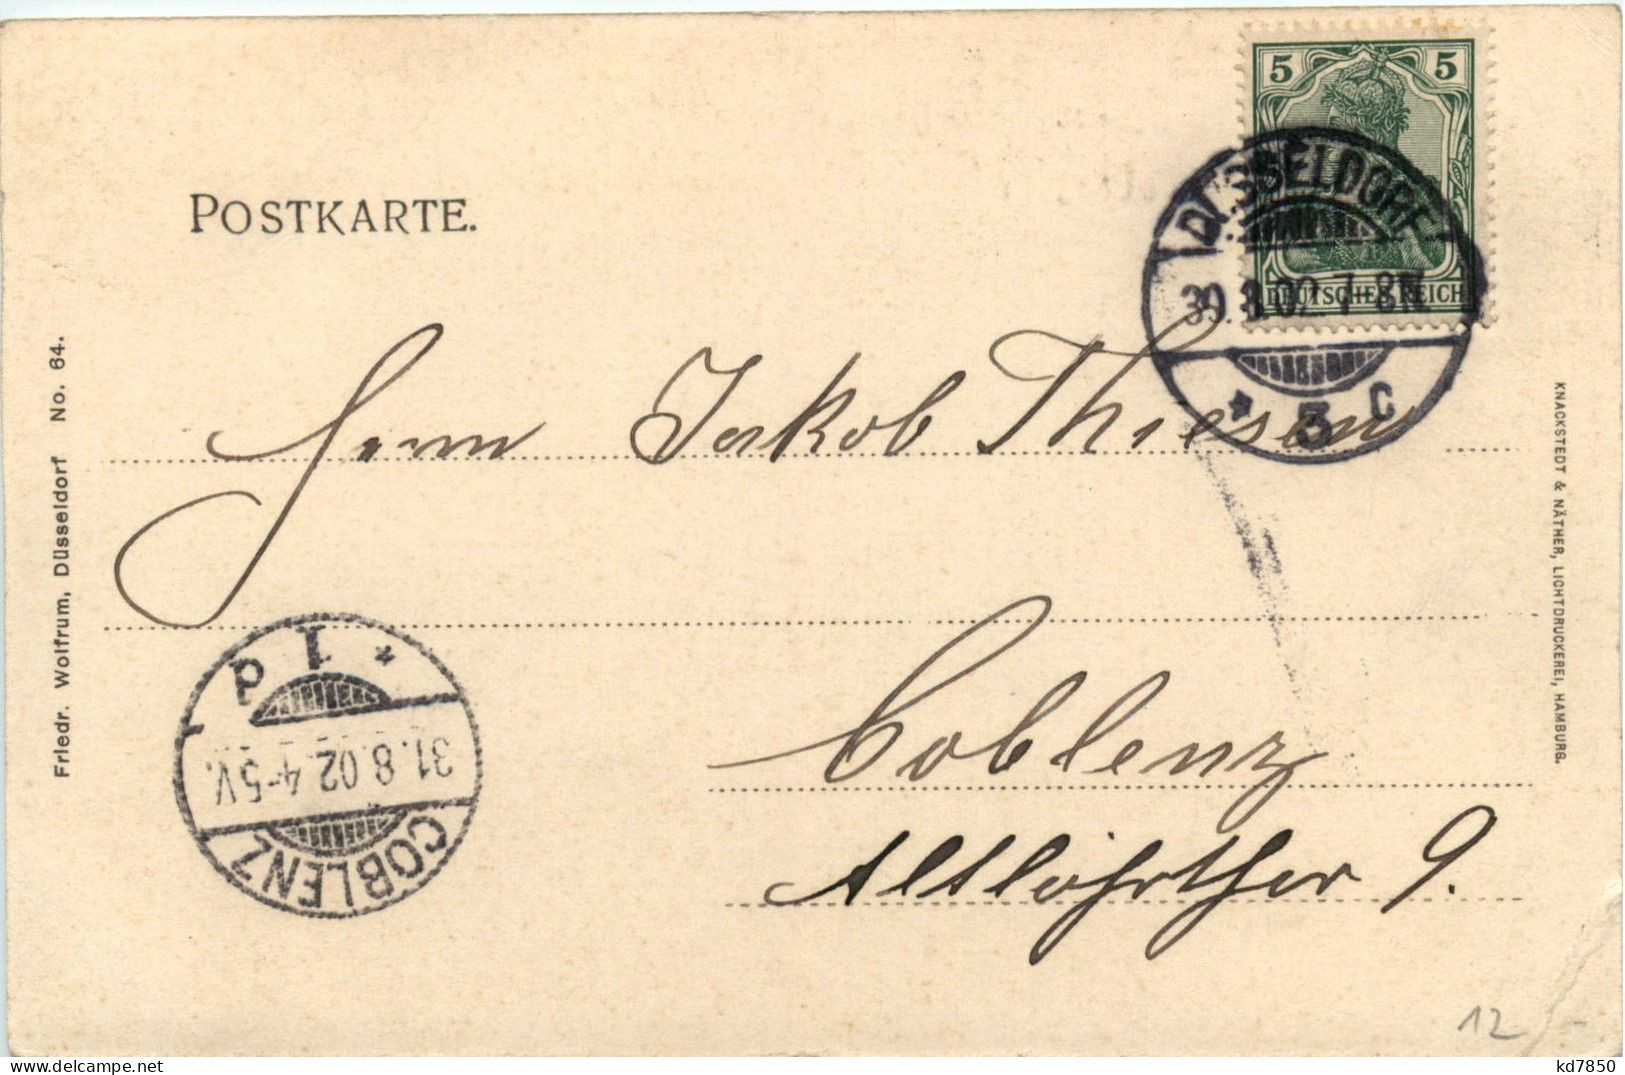 POSTKARTE.
5 5
DEUTSCHES REICH
DÜSSELDORF
30.8.02.7-8N.
* 3 c
Herrn Jakob Thiesen
Coblenz
Altlöhrthor 9.
* 1 d
31.8.02.4-5V.
COBLENZ
Friedr. Wolfrum, Düsseldorf No. 64.
KNACKSTEDT & NÄTHER, LICHTDRUCKEREI, HAMBURG.
12
delcampe.net
kd7850